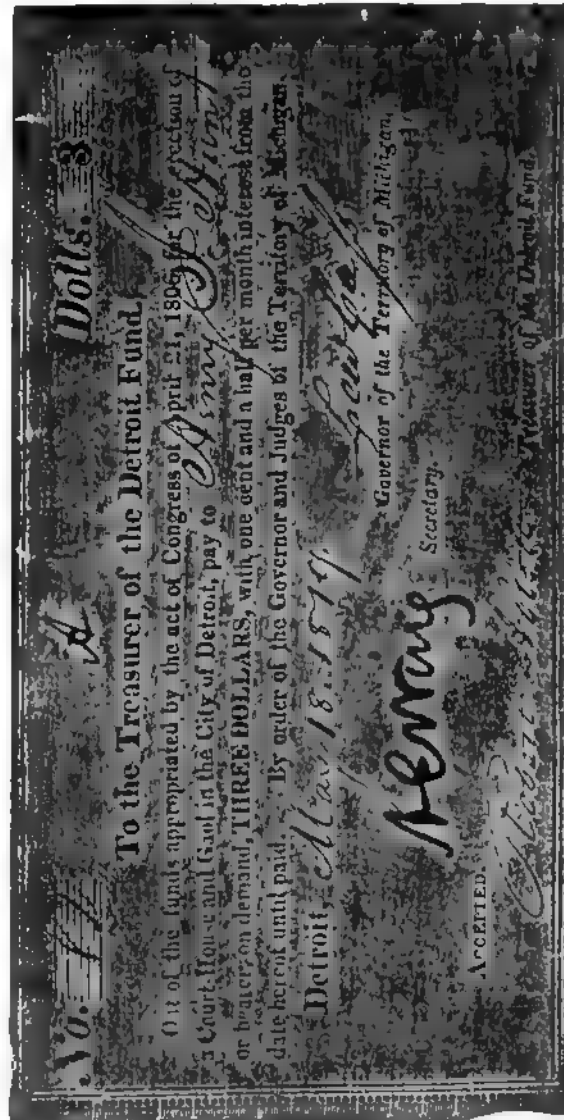 No. 11 A Dolls. 3
To the Treasurer of the Detroit Fund,
Out of the funds appropriated by the act of Congress of April 21, 1806, for the erection of
a Court House and Gaol in the City of Detroit, pay to Henry J. Hunt
or bearer, on demand, THREE DOLLARS, with one cent and a half per month interest from the
date hereof until paid. By order of the Governor and Judges of the Territory of Michigan.
Detroit, May 18. 1819 Lew Cass
Governor of the Territory of Michigan.
Secretary.
ACCEPTED.
Treasurer of the Detroit Fund.